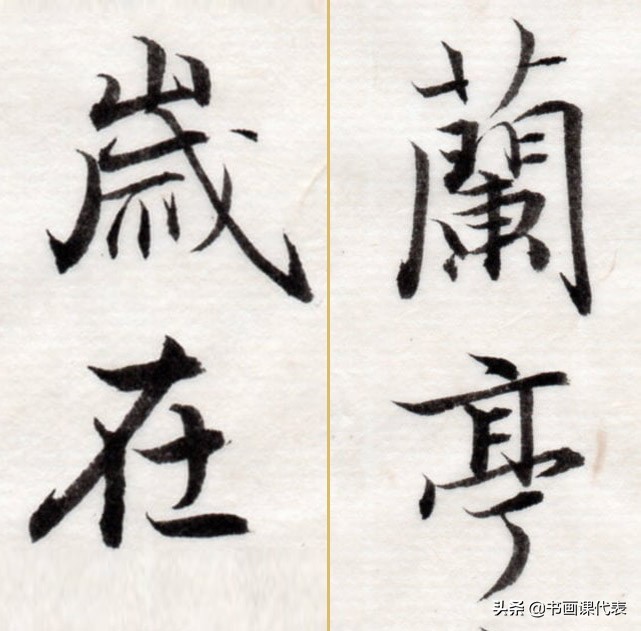 蘭亭
歲在
头条 @书画课代表